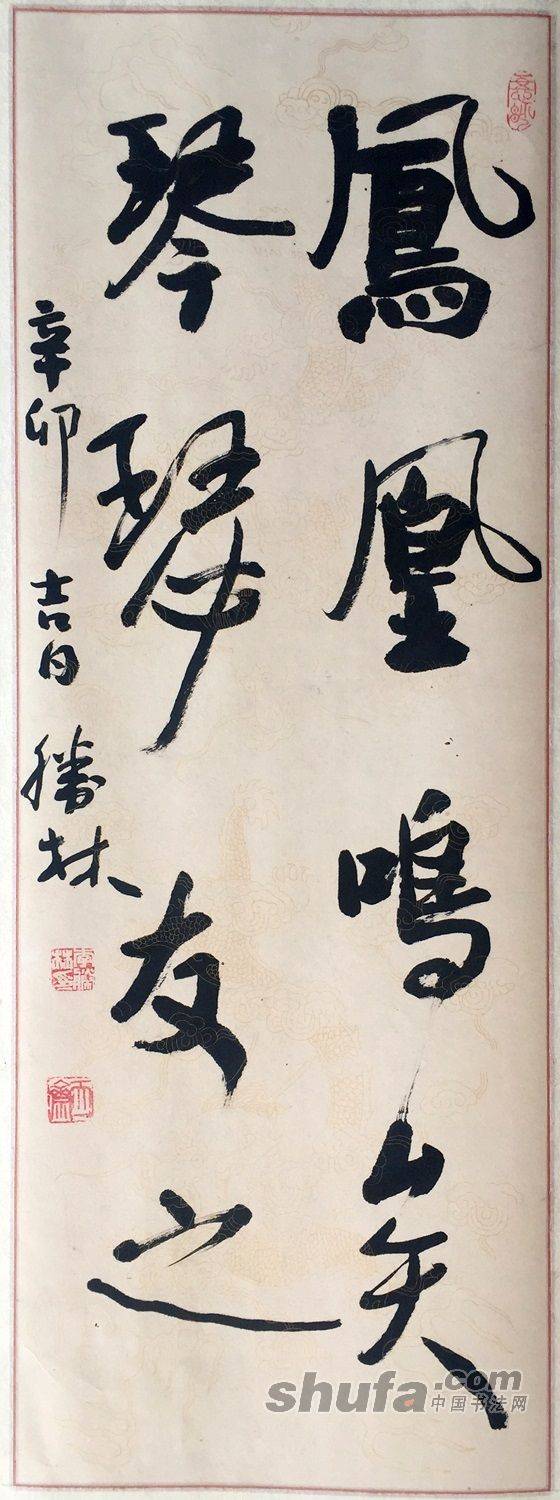 鳳凰鳴矣
琴瑟友之
辛卯吉日勝林
shufa.com
中国书法网